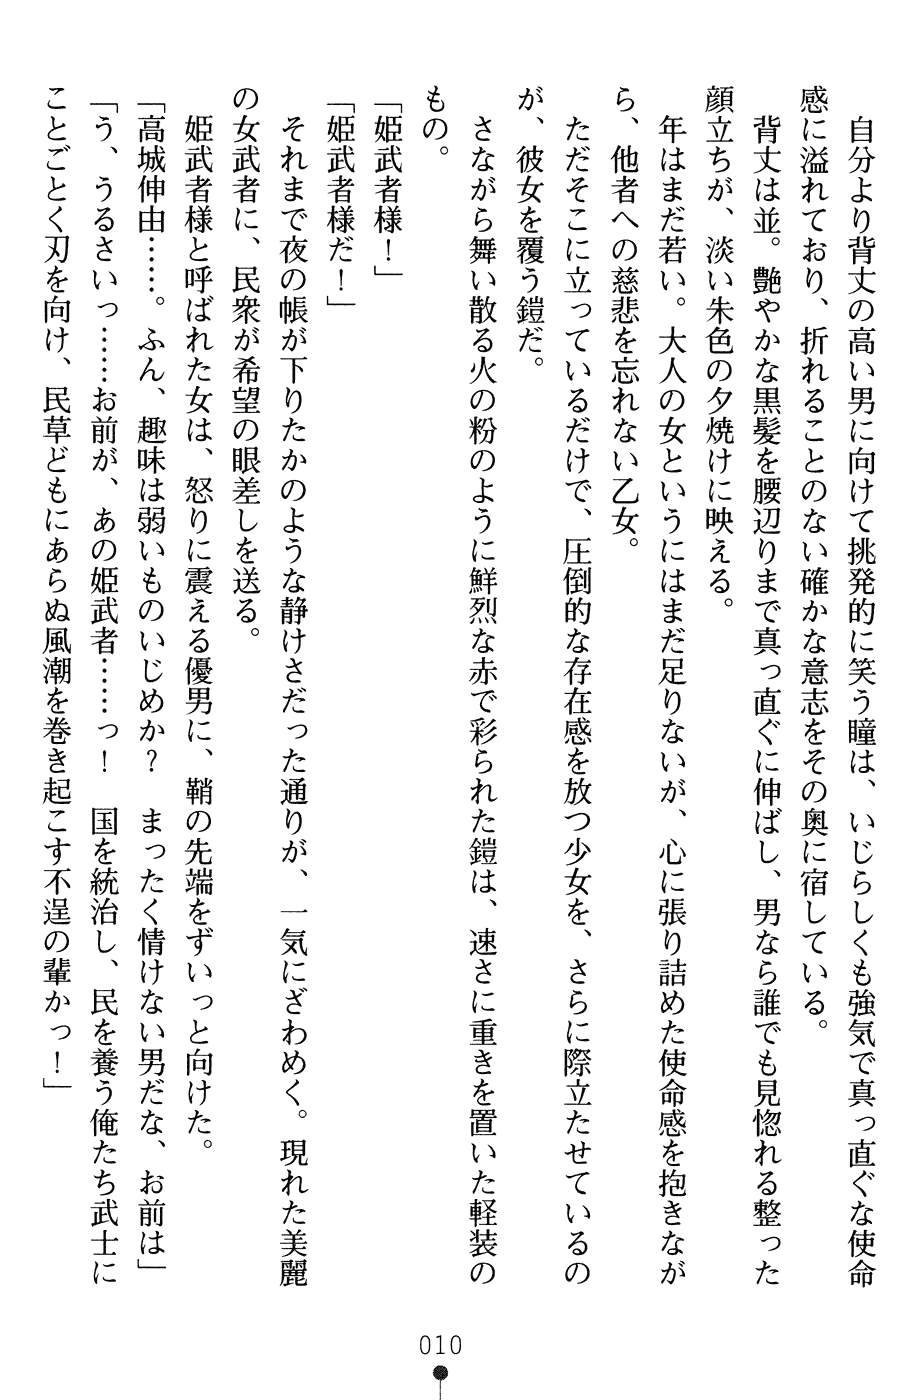 自分より背丈の高い男に向けて挑発的に笑う瞳は、いじらしくも強気で真っ直ぐな使命
感に溢れており、折れることのない確かな意志をその奥に宿している。
背丈は並。艶やかな黒髪を腰辺りまで真っ直ぐに伸ばし、男なら誰でも見惚れる整った
顔立ちが、淡い朱色の夕焼けに映える。
年はまだ若い。大人の女というにはまだ足りないが、心に張り詰めた使命感を抱きなが
ら、他者への慈悲を忘れない乙女。
ただそこに立っているだけで、圧倒的な存在感を放つ少女を、さらに際立たせているの
が、彼女を覆う鎧だ。
さながら舞い散る火の粉のように鮮烈な赤で彩られた鎧は、速さに重きを置いた軽装の
もの。
「姫武者様！」
「姫武者様だ！」
それまで夜の帳が下りたかのような静けさだった通りが、一気にざわめく。現れた美麗
の女武者に、民衆が希望の眼差しを送る。
姫武者様と呼ばれた女は、怒りに震える優男に、鞘の先端をずいっと向けた。
「高城伸由……。ふん、趣味は弱いものいじめか？　まったく情けない男だな、お前は」
「う、うるさいっ……お前が、あの姫武者……っ！　国を統治し、民を養う俺たち武士に
ことごとく刃を向け、民草どもにあらぬ風潮を巻き起こす不逞の輩かっ！」
010